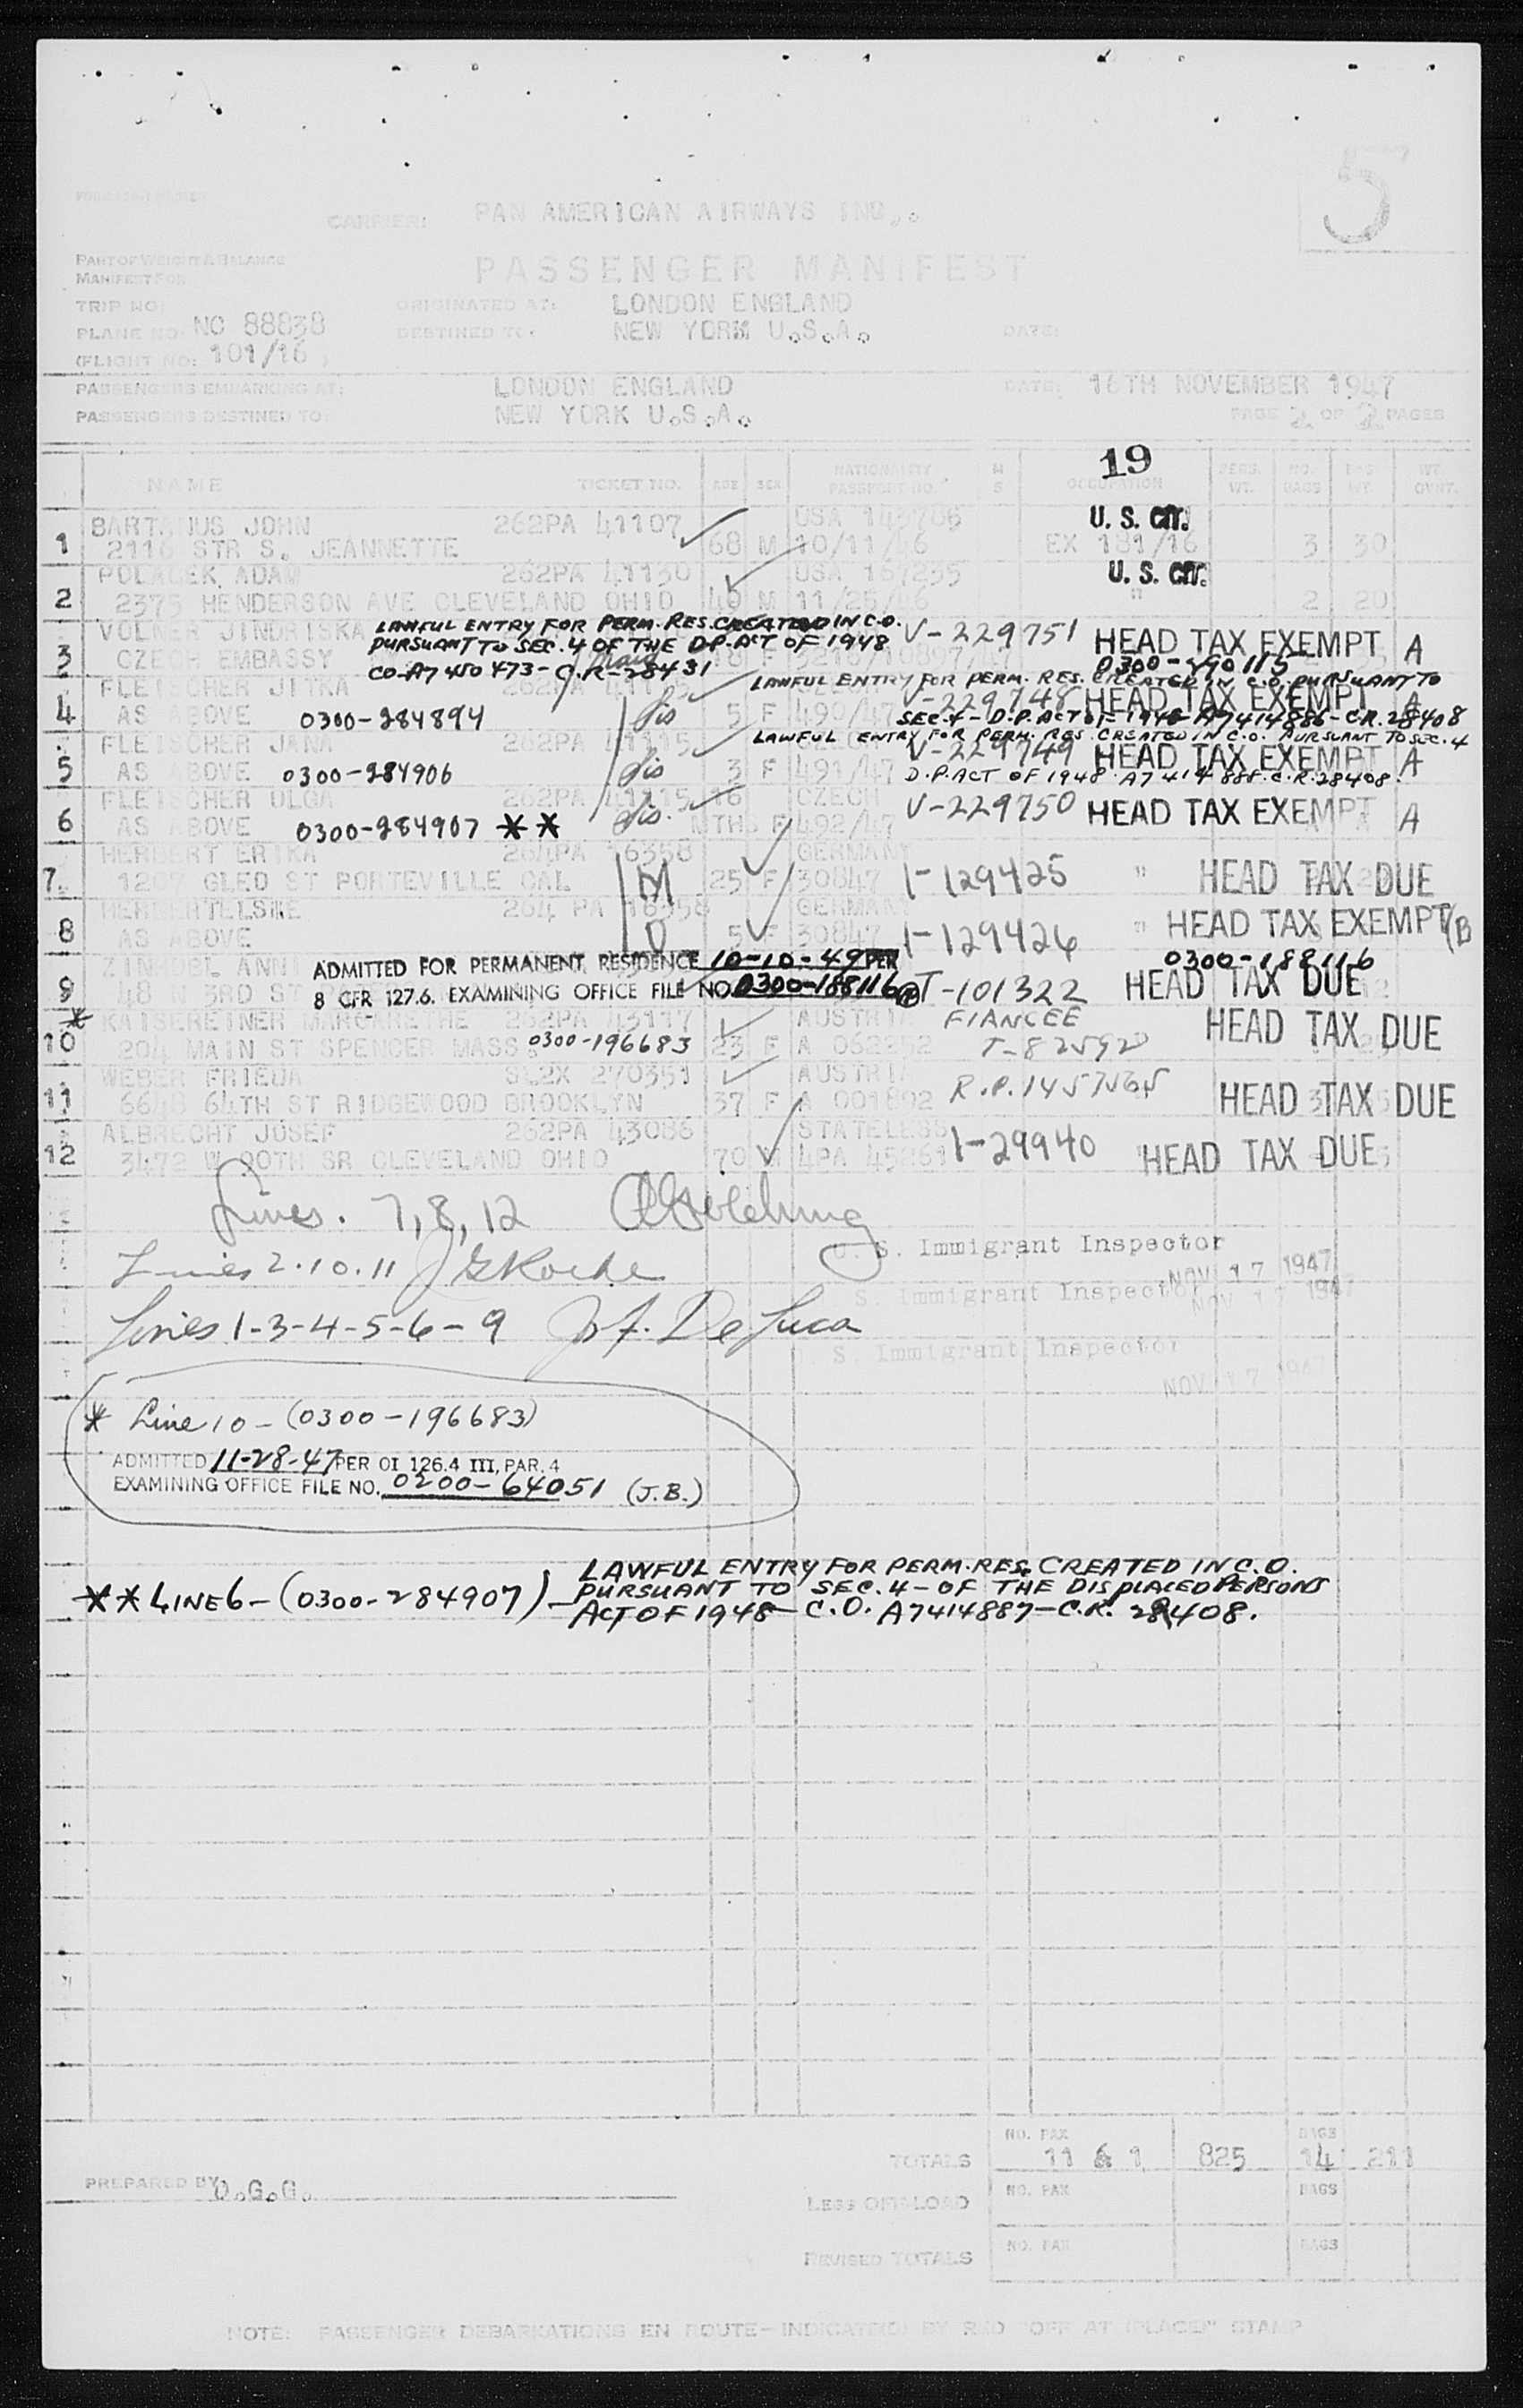 5
CARRIER: PAN AMERICAN AIRWAYS INC..
PART OF WEIGHT & BALANCE
MANIFEST FOR
PASSENGER MANIFEST
TRIP NO:
ORIGINATED AT: LONDON ENGLAND
PLANE NO. NC 88838
DESTINED TO: NEW YORK U.S.A.
DATE:
(FLIGHT NO: 101/16 )
PASSENGERS EMBARKING AT: LONDON ENGLAND
DATE: 16TH NOVEMBER 1947
PASSENGERS DESTINED TO: NEW YORK U.S.A.
PAGE 2 OF 2 PAGES
19
NAME TICKET NO. AGE SEX NATIONALITY PASSPORT NO. M S OCCUPATION PERS. WT. NO. BAGS BAG WT. WT. OVHT.
1 JOHN 262PA 41107 USA U.S. CIT.
2116 STR S. JEANNETTE 68 M 10/11/46 EX 181/16 3 30
2 POLACEK ADAM 262PA 41130 USA 167235 U.S. CIT.
2375 HENDERSON AVE CLEVELAND OHIO 49 M 11/25/46 " 2 20
3 VOLNER JINDRISKA LAWFUL ENTRY FOR PERM. RES. CREATED IN C.O. V-229751 HEAD TAX EXEMPT A
PURSUANT TO SEC. 4 OF THE D.P. ACT OF 1948
CZECH EMBASSY 18 F 0300-290115
CO-A7450473-C.R-28431
4 FLEISCHER JITKA LAWFUL ENTRY FOR PERM. RES. CREATED IN C.O. PURSUANT TO
V-229748 HEAD TAX EXEMPT A
AS ABOVE 0300-284894 Sis 5 F 490/47 SEC. 4 - D.P. ACT OF 1948 A7414886-C.R. 28408
5 FLEISCHER JANA 262PA 41115 LAWFUL ENTRY FOR PERM. RES. CREATED IN C.O. PURSUANT TO SEC. 4
V-229749 HEAD TAX EXEMPT A
AS ABOVE 0300-284906 Sis 3 F 491/47 D.P. ACT OF 1948 A7414888.C.R. 28408.
6 FLEISCHER OLGA 262PA 41115 16 CZECH V-229750 HEAD TAX EXEMPT A
AS ABOVE 0300-284907 ** Sis. MTHS F 492/47
7 HERBERT ERIKA 264PA 16358 GERMANY
1207 GLED ST PORTEVILLE CAL M 25 F 30847 1-129425 " HEAD TAX DUE
8 264 PA 16358 GERMANY
AS ABOVE D 5 F 30847 1-129426 " HEAD TAX EXEMPT (B
9 ADMITTED FOR PERMANENT RESIDENCE 10-10-49 PER 0300-188116
8 CFR 127.6. EXAMINING OFFICE FILE NO. 0300-188116 T-101322 HEAD TAX DUE
* 10 KAISEREINER MARGARETHE 262PA 43117 AUSTRIA FIANCEE
204 MAIN ST SPENCER MASS 0300-196683 23 F T-82592 HEAD TAX DUE
11 WEBER FRIEDA 270351 AUSTRIA R.P. 1457565
6648 64TH ST RIDGEWOOD BROOKLYN 37 F A 001802 HEAD TAX DUE
12 ALBRECHT JOSEF 262PA 43086 STATELESS
3472 W 90TH SR CLEVELAND OHIO 70 M 1-29940 HEAD TAX DUE
Lines. 7, 8, 12
U. S. Immigrant Inspector
Lines 2.10.11 J G Roche
NOV 17 1947
S. Immigrant Inspector
NOV 17 1947
Lines 1-3-4-5-6-9 De Luca
U. S. Immigrant Inspector
NOV 17 1947
* Line 10 - (0300-196683)
ADMITTED 11-28-47 PER OI 126.4 III, PAR. 4
EXAMINING OFFICE FILE NO. 0200-64051 (J.B.)
** LINE 6 - (0300-284907) - LAWFUL ENTRY FOR PERM. RES. CREATED IN C.O.
PURSUANT TO SEC. 4 - OF THE DISPLACED PERSONS
ACT OF 1948 - C.O. A7414887-C.R. 28408.
TOTALS NO. PAX 11 & 1 825 BAGS 14 211
PREPARED BY O.G.G.
LESS OFFLOAD NO. PAX BAGS
REVISED TOTALS NO. PAX BAGS
NOTE: PASSENGER DEBARKATIONS EN ROUTE - INDICATED BY RED "OFF AT (PLACE)" STAMP